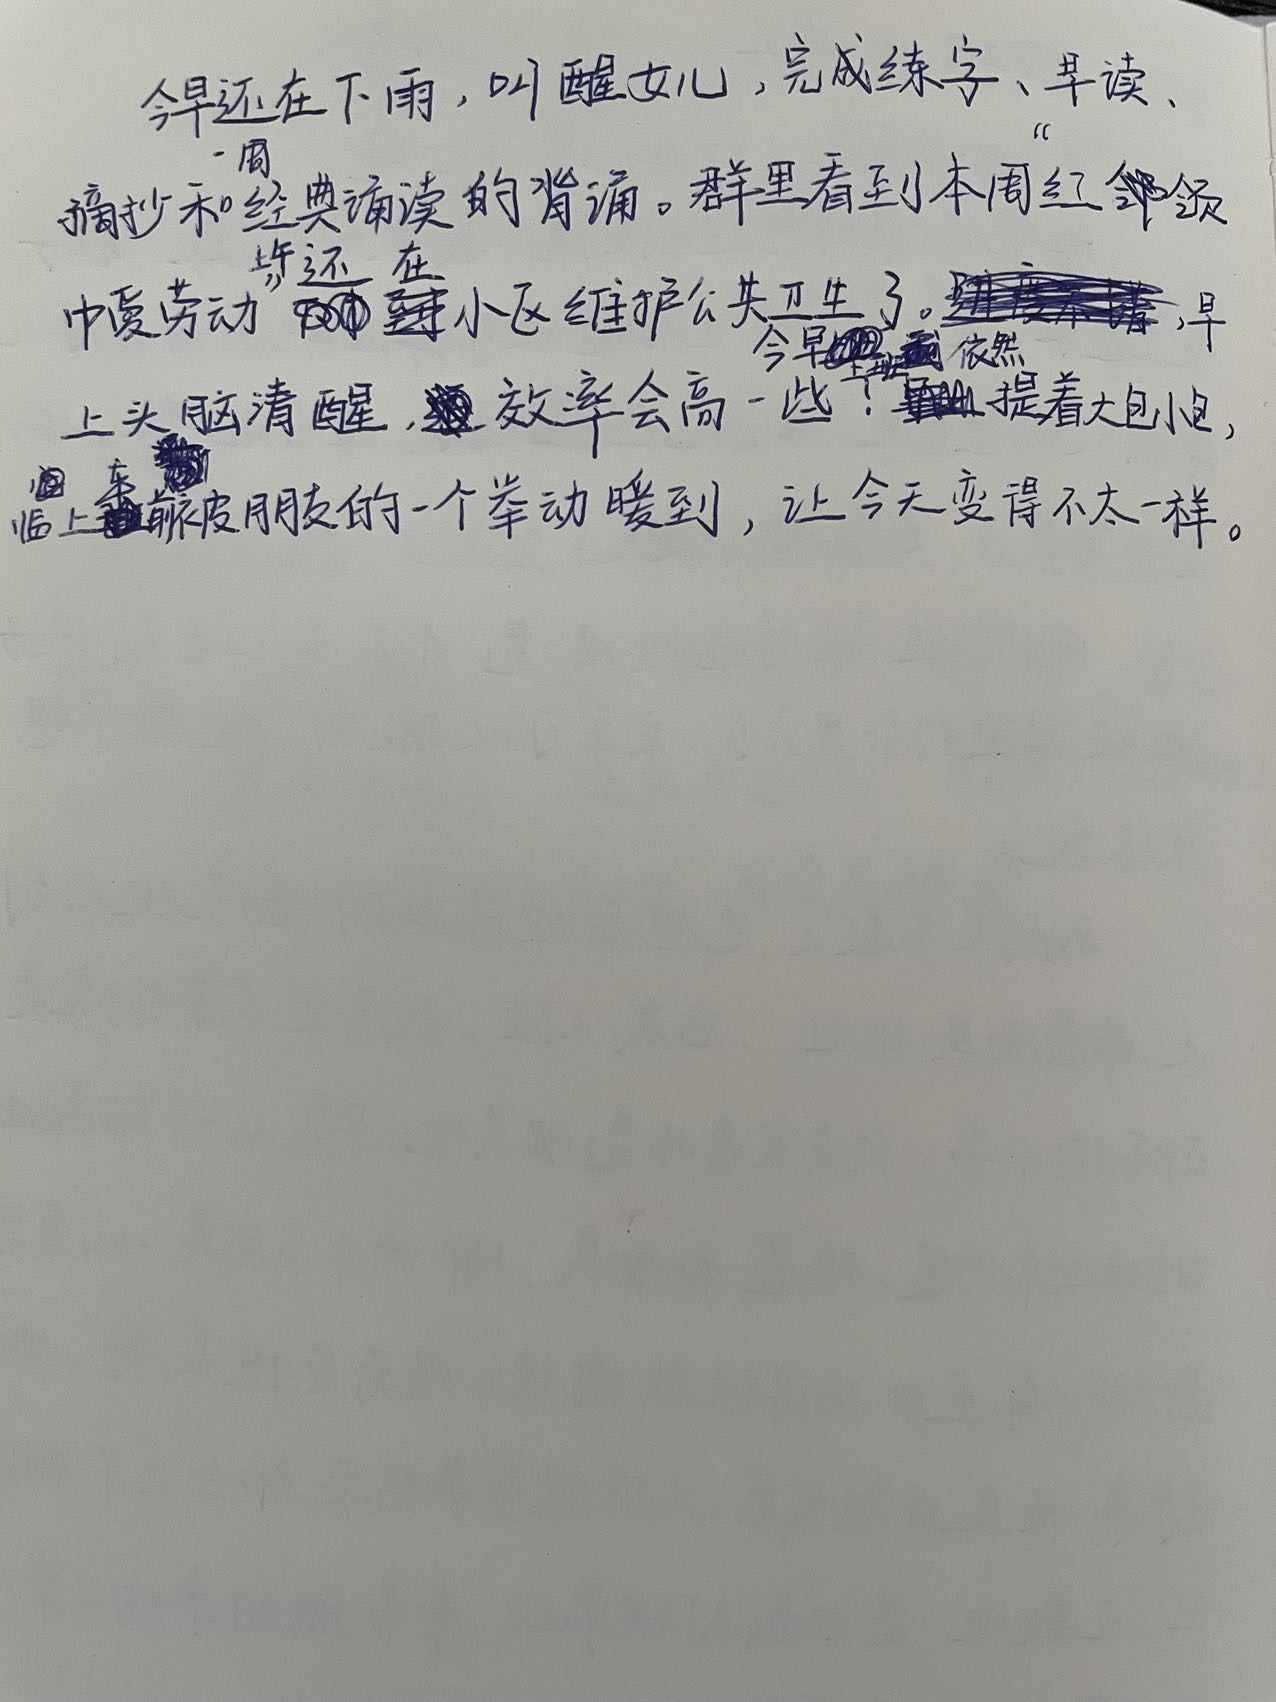 今早还在下雨，叫醒女儿，完成练字、早读、
一周
摘抄和经典诵读的背诵。群里看到本周红“领
上午还在
巾爱劳动”小区维护公共卫生了。，早
今早上班依然
上头脑清醒，效率会高一些！提着大包小包，
车
临上前被朋友的一个举动暖到，让今天变得不太一样。